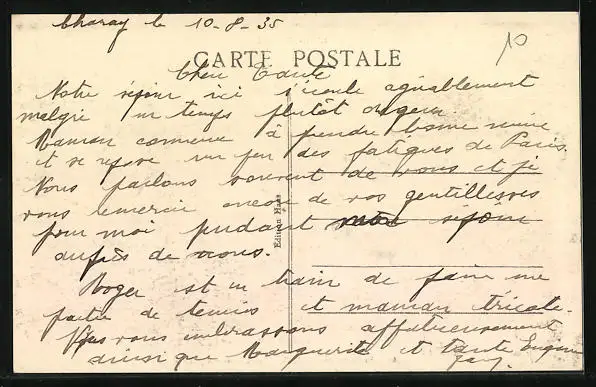 Charay le 10-8-35
10
CARTE POSTALE
Chère Tante
Notre séjour ici s'écoule agréablement
malgré un temps plutôt orageux.
Maman commence à prendre bonne mine
et se repose un peu des fatigues de Paris.
Nous parlons souvent de vous et je
vous remercie encore de vos gentillesses
pour moi pendant mon séjour
auprès de vous.
Roger est en train de faire une
partie de tennis et maman tricote.
Nous vous embrassons affectueusement
ainsi que Marguerite et tante Eugénie
Edition Haas